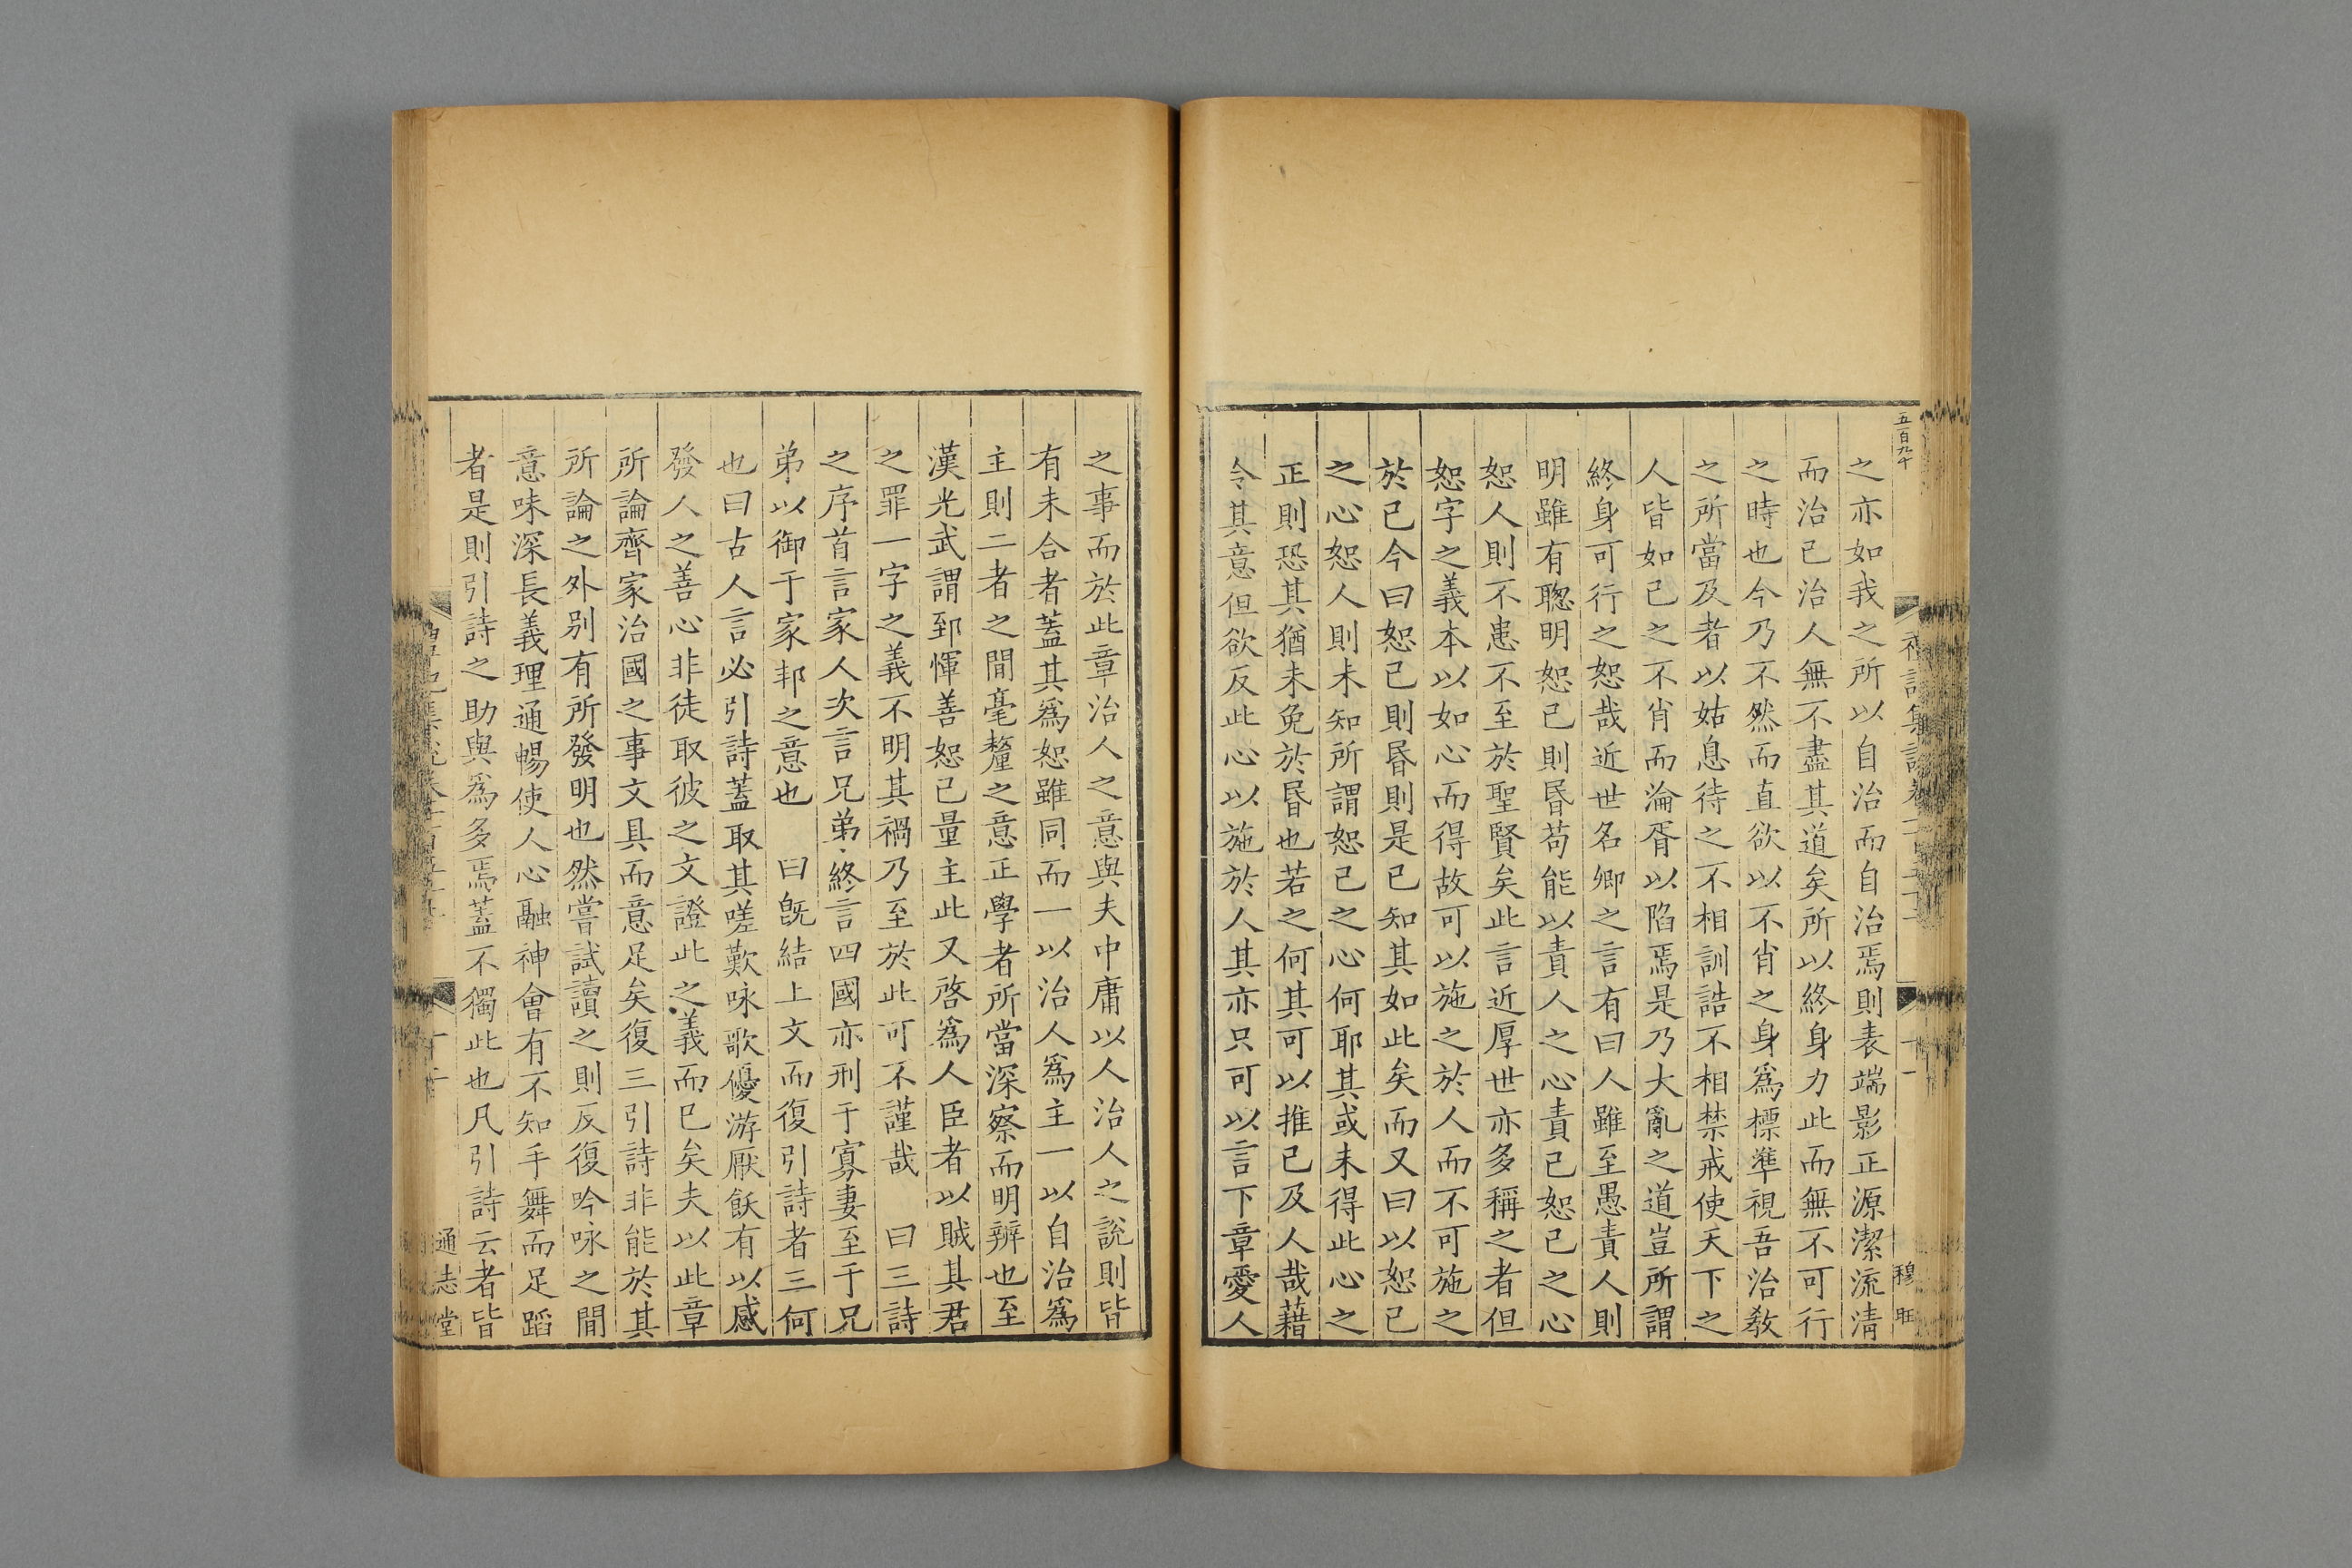 五百九十
之亦如我之所以自治而自治焉則表端影正源潔流清
而治己治人無不盡其道矣所以終身力此而無不可行
之時也今乃不然而直欲以不肖之身爲標準視吾治敎
之所當及者以姑息待之不相訓誥不相禁戒使天下之
人皆如己之不肖而淪胥以陷焉是乃大亂之道豈所謂
終身可行之恕哉近世名卿之言有曰人雖至愚責人則
明雖有聰明恕己則昬苟能以責人之心責己恕己之心
恕人則不患不至於聖賢矣此言近厚世亦多稱之者但
恕字之義本以如心而得故可以施之於人而不可施之
於己今曰恕己則昬則是已知其如此矣而又曰以恕己
之心恕人則未知所謂恕己之心何耶其或未得此心之
正則恐其猶未免於昬也若之何其可以推己及人哉藉
令其意但欲反此心以施於人其亦只可以言下章愛人
之事而於此章治人之意與夫中庸以人治人之說則皆
有未合者蓋其爲恕雖同而一以治人爲主一以自治爲
主則二者之間毫釐之意正學者所當深察而明辨也至
漢光武謂郅惲善恕己量主此又啓爲人臣者以賊其君
之罪一字之義不明其禍乃至於此可不謹哉 曰三詩
之序首言家人次言兄弟終言四國亦刑于寡妻至于兄
弟以御于家邦之意也 曰旣結上文而復引詩者三何
也曰古人言必引詩蓋取其嗟歎咏歌優游厭飫有以感
發人之善心非徒取彼之文證此之義而已矣夫以此章
所論齊家治國之事文具而意足矣復三引詩非能於其
所論之外別有所發明也然嘗試讀之則反復吟咏之間
意味深長義理通暢使人心融神會有不知手舞而足蹈
者是則引詩之助與爲多焉蓋不獨此也凡引詩云者皆
通志堂